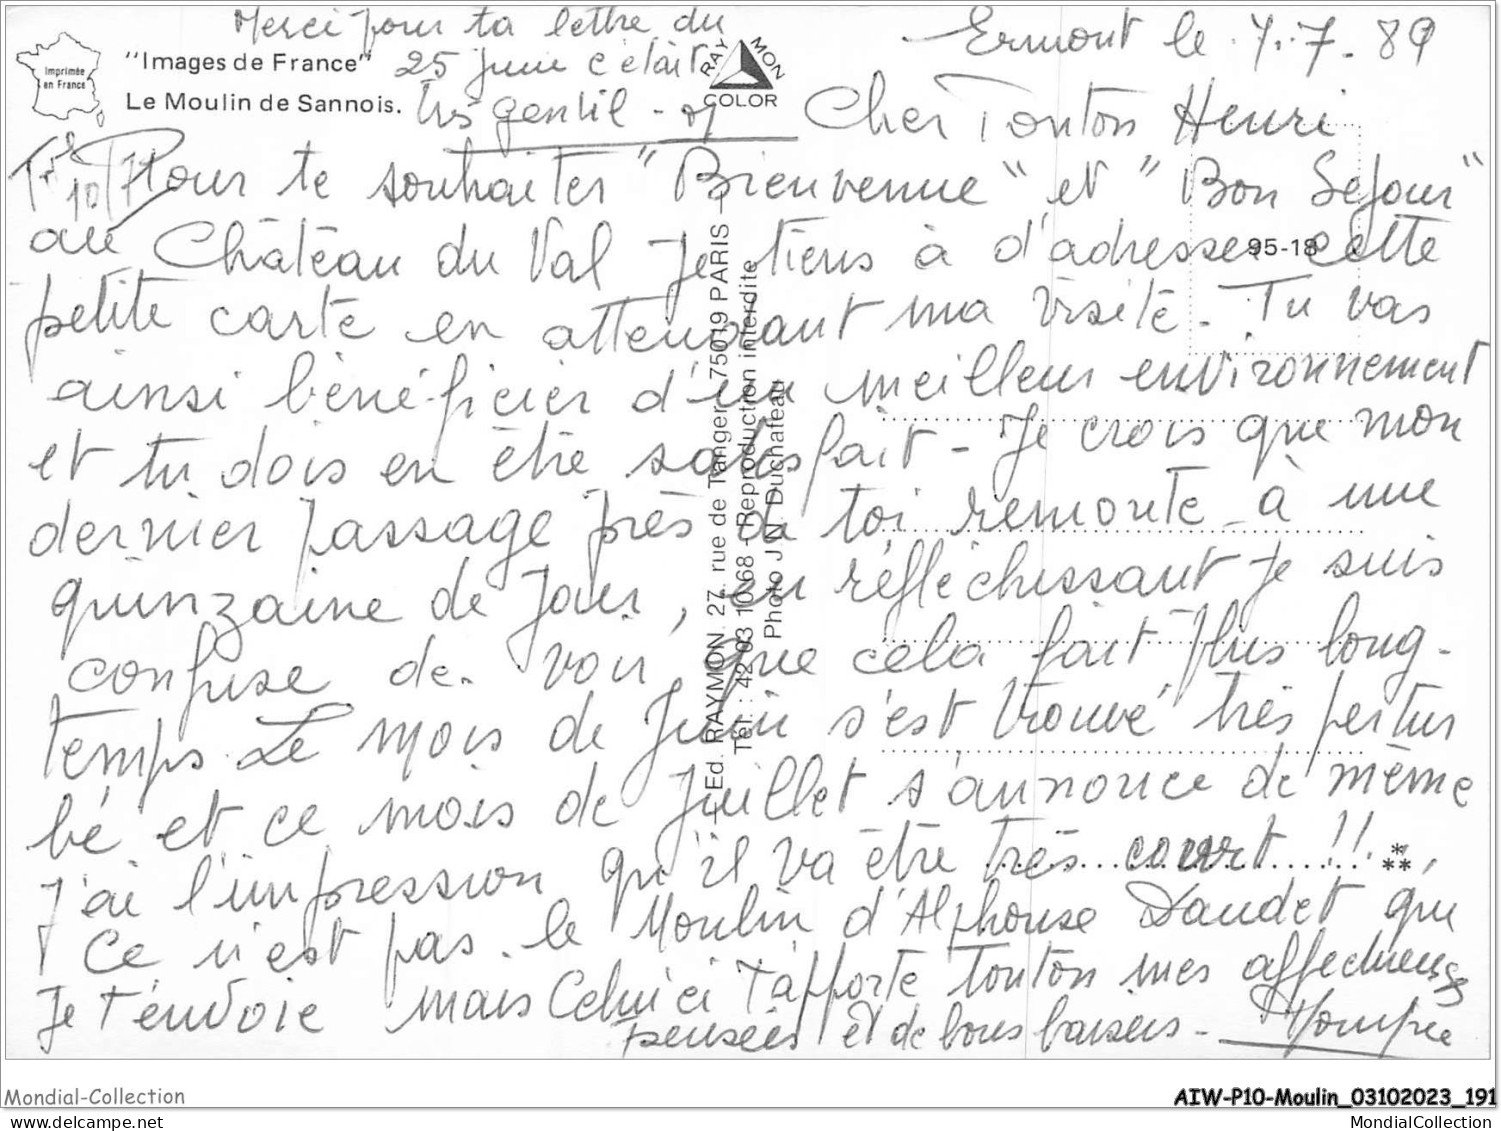 Merci pour ta lettre du
25 juin c'était
très gentil -
Imprimée
en France
"Images de France"
Le Moulin de Sannois.
RAYMON
COLOR
Ermont le 7.7.89
Cher Tonton Henri
10/7
Pour te souhaiter "Bienvenue" et "Bon Séjour"
au Château du Val je tiens à d'adresser cette
petite carte en attendant ma visite. Tu vas
ainsi bénéficier d'un meilleur environnement
et tu dois en être satisfait - Je crois que mon
dernier passage près de toi remonte à une
quinzaine de jours, en réfléchissant je suis
confuse de voir que cela fait plus long-
temps. Le mois de Juin s'est trouvé très pertur
bé et ce mois de Juillet s'annonce de même
j'ai l'impression qu'il va être très court !!
Ce n'est pas le Moulin d'Alphonse Daudet que
Je t'envoie mais Celui ci t'apporte Tonton mes affectueuses
pensées et de bons baisers -
95-18
Ed. RAYMON 27, rue de Tanger 75019 PARIS
Tél. : 42 03 10 68 - Reproduction interdite
Photo J.N. Duchateau
Mondial-Collection
AIW-P10-Moulin_03102023_191
www.mondial-collection.com
MondialCollection